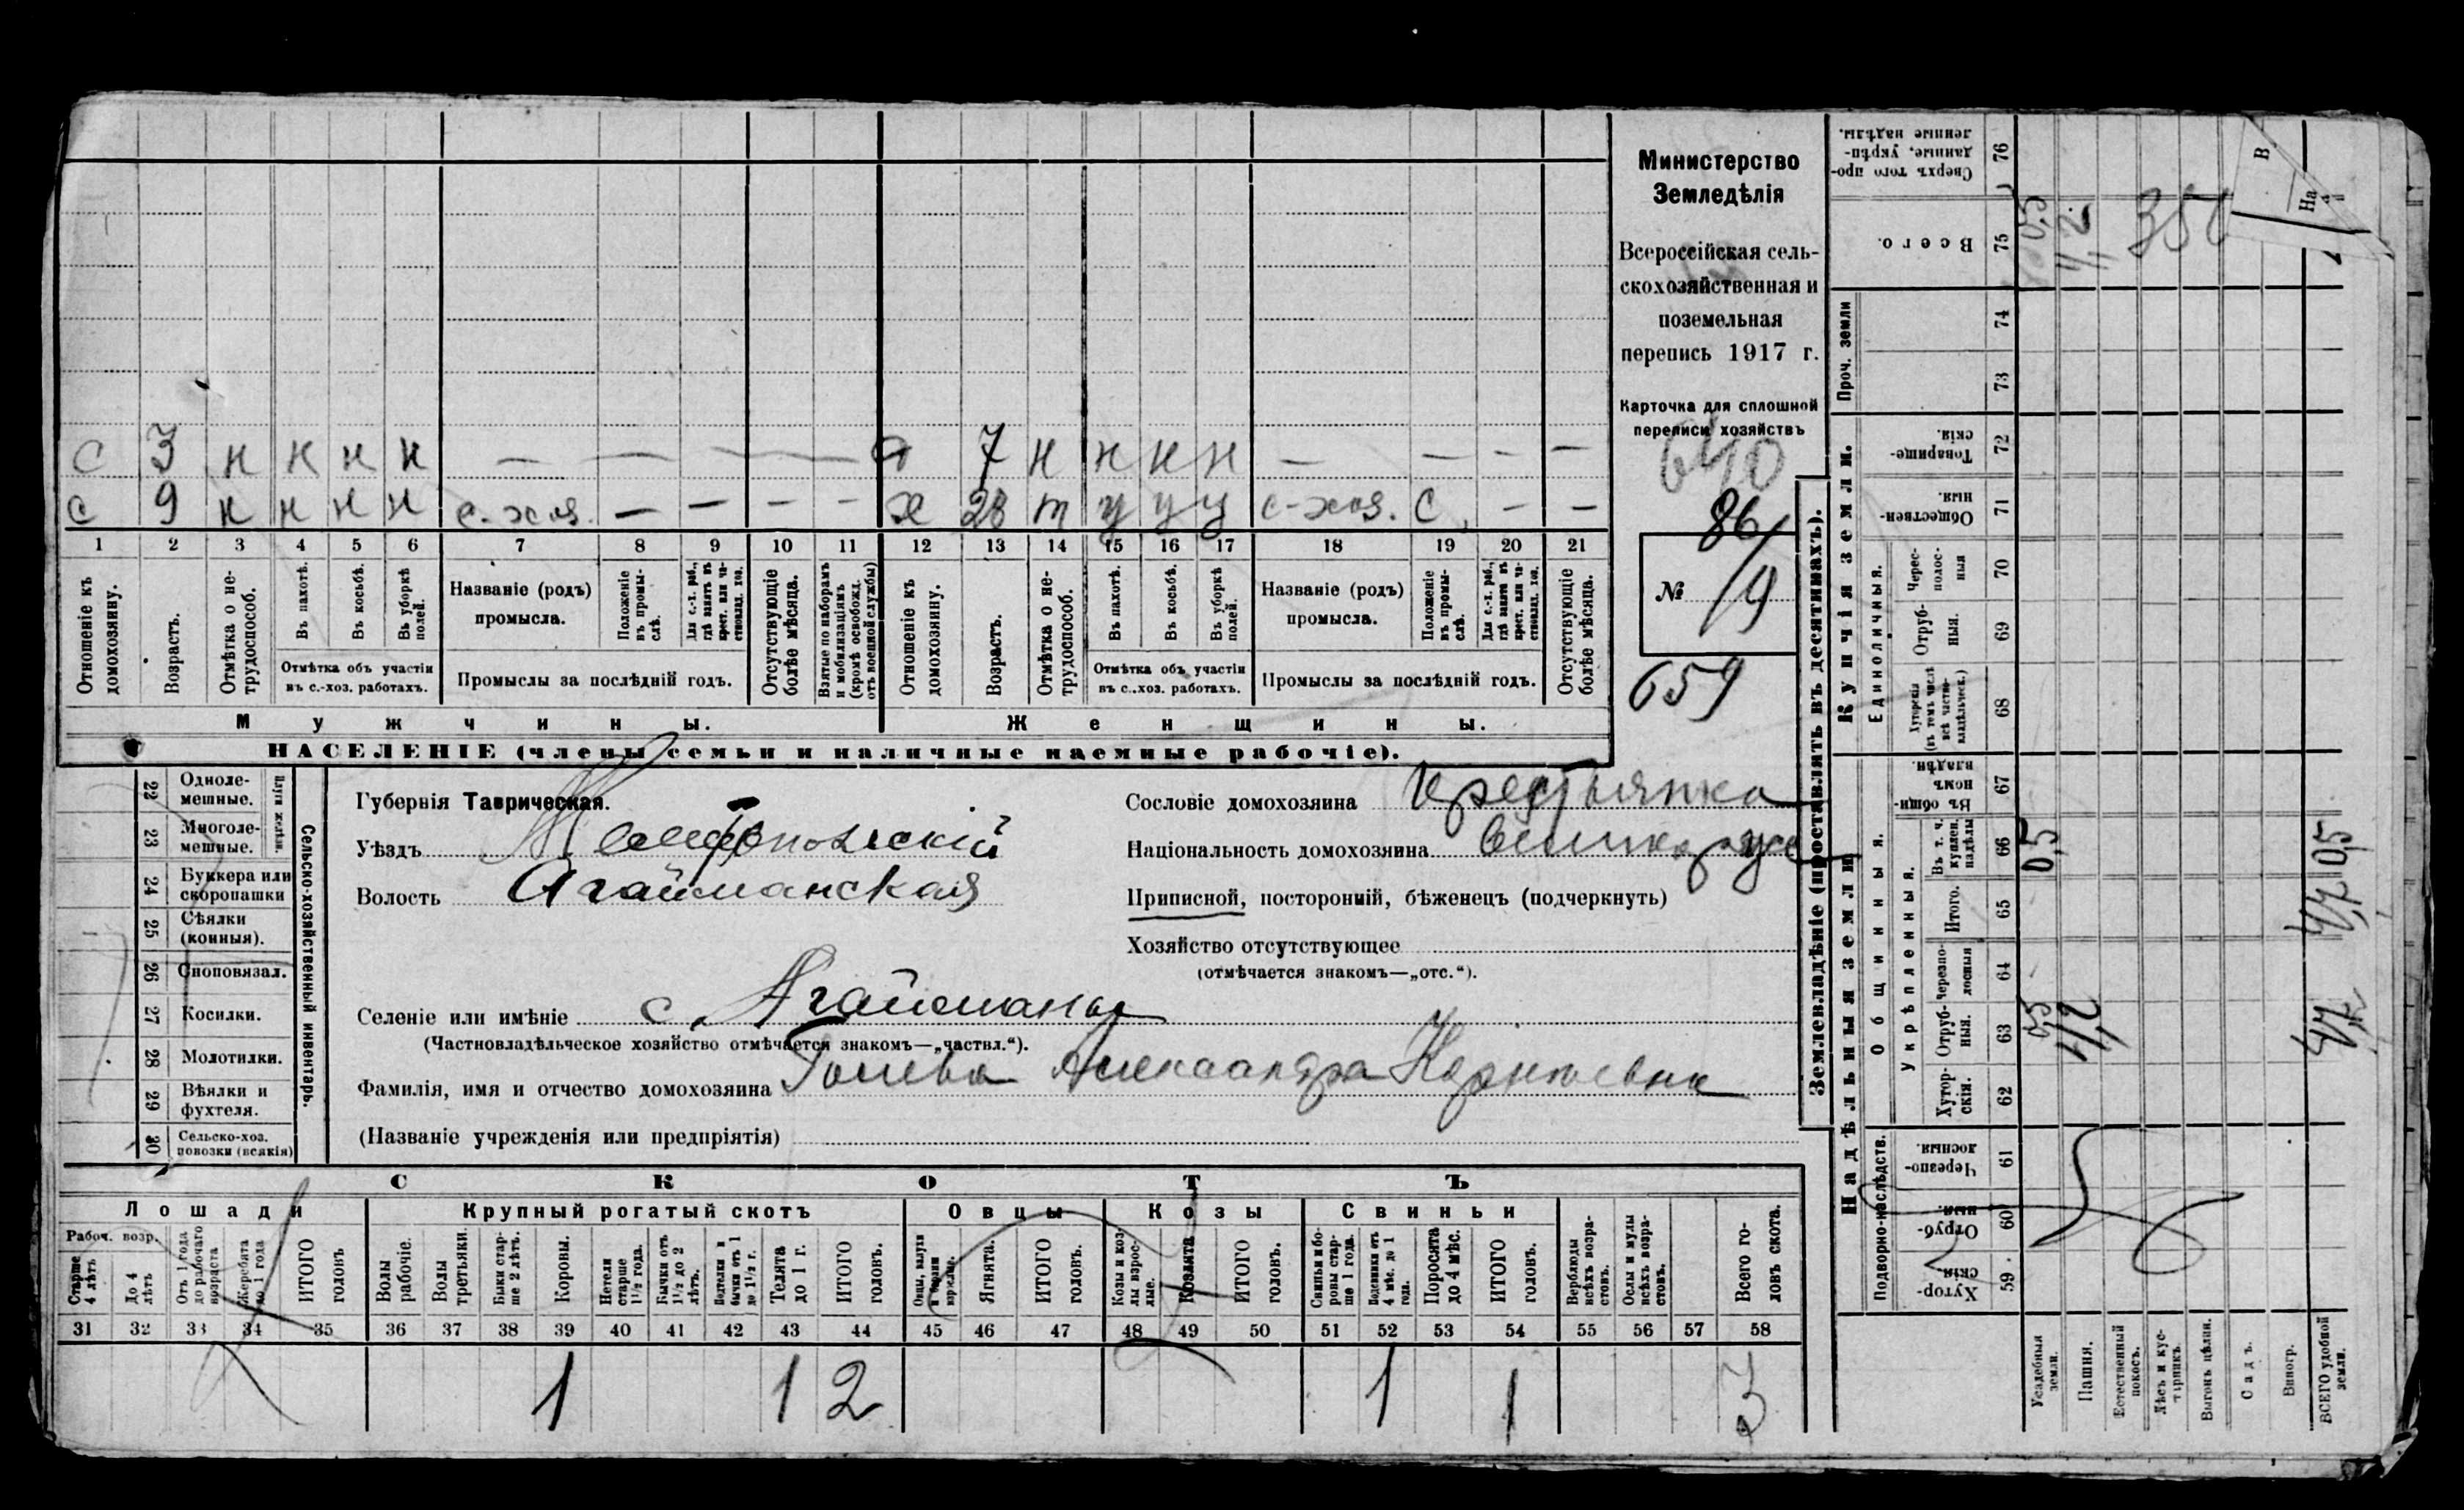 с 3 н н н н — — — — — 7 н н н н — — — —
с 9 н н н н с.-хоз. — — — — х 28 т у у у с-хоз. с — —
1 2 3 4 5 6 7 8 9 10 11 12 13 14 15 16 17 18 19 20 21
Отношеніе къ домохозяину.
Возрастъ.
Отмѣтка о не-трудоспособ.
Въ пахотѣ.
Въ косьбѣ.
Въ уборкѣ полей.
Отмѣтка объ участіи
въ с.-хоз. работахъ.
Названіе (родъ)
промысла.
Положеніе въ промы-слѣ.
Для с.-х. раб., гдѣ занятъ въ крест. или ча-стновлад. хоз.
Промыслы за послѣдній годъ.
Отсутствующіе болѣе мѣсяца.
Взятые по наборамъ и мобилизаціямъ (кромѣ освобожд. отъ военной службы)
Отношеніе къ домохозяину.
Возрастъ.
Отмѣтка о не-трудоспособ.
Въ пахотѣ.
Въ косьбѣ.
Въ уборкѣ полей.
Отмѣтка объ участіи
въ с.-хоз. работахъ.
Названіе (родъ)
промысла.
Положеніе въ промы-слѣ.
Для с.-х. раб., гдѣ занята въ крест. или ча-стновлад. хоз.
Промыслы за послѣдній годъ.
Отсутствующіе болѣе мѣсяца.
Мужчины. Женщины.
НАСЕЛЕНІЕ (члены семьи и наличные наемные рабочіе).
Министерство
Земледѣлія
Всероссійская сель-
скохозяйственная и
поземельная
перепись 1917 г.
Карточка для сплошной
переписи хозяйствъ
640
86/
№ 19
659
22 Одноле-мешные.
23 Многоле-мешные.
Плуги желѣзн.
24 Буккера или скоропашки
25 Сѣялки (конныя).
26 Сноповязал.
27 Косилки.
28 Молотилки.
29 Вѣялки и фухтеля.
30 Сельско-хоз. повозки (всякія)
Сельско-хозяйственный инвентарь.
Губернія Таврическая.
Уѣздъ Мелитопольскій
Волость Агайманская
Селеніе или имѣніе с. Агайманы
(Частновладѣльческое хозяйство отмѣчается знакомъ—„частвл.“).
Фамилія, имя и отчество домохозяина Александра
(Названіе учрежденія или предпріятія)
Сословіе домохозяина крестьянка
Національность домохозяина великорус
Приписной, посторонній, бѣженецъ (подчеркнуть)
Хозяйство отсутствующее
(отмѣчается знакомъ—„отс.“).
СКОТЪ
Лошади Крупный рогатый скотъ Овцы Козы Свиньи
Рабоч. возр.
Старше 4 лѣтъ
До 4 лѣтъ
Отъ 1 года до рабочаго возраста
Жеребята до 1 года
ИТОГО головъ
Волы рабочіе.
Волы третьяки.
Быки стар-ше 2 лѣтъ.
Коровы.
Нетели старше 1½ года.
Бычки отъ 1½ до 2 лѣтъ.
Подтелки и бычки отъ 1 до 1½ г.
Телята до 1 г.
ИТОГО головъ.
Овцы, валухи и бараны взрослые.
Ягнята.
ИТОГО головъ.
Козы и коз-лы взрос-лые.
Козлята
ИТОГО головъ.
Свиньи и бо-ровы стар-ше 1 года.
Подсвинки отъ 4 мѣс. до 1 года.
Поросята до 4 мѣс.
ИТОГО головъ.
Верблюды всѣхъ возра-стовъ.
Ослы и мулы всѣхъ возра-стовъ.
Всего го-ловъ скота.
31 32 33 34 35 36 37 38 39 40 41 42 43 44 45 46 47 48 49 50 51 52 53 54 55 56 57 58
1 1 2 1 1 3
Землевладѣніе (проставлять въ десятинахъ).
Надѣльныя земли
Купчія земли.
Проч. земли
Подворно-наслѣдств.
Общинныя.
Укрѣпленныя.
Единоличныя.
Сверхъ того про-данные, укрѣп-ленные надѣлы. 76
Всего. 75
74
73
Товарище-скія. 72
Обществен-ныя. 71
Черес-полос-ныя 70
Отруб-ныя. 69
Хуторскія (въ томъ числѣ всѣ частно-владѣльческ.) 68
Въ общи-номъ владѣн. 67
Въ т. ч. куплен. надѣлы 66
Итого. 65
Черезпо-лосныя 64
Отруб-ныя. 63
Хутор-скія. 62
Черезпо-лосныя. 61
Отруб-ныя. 60
Хутор-скія. 59
0,5
Усадебныя земли.
Пашня.
Естественный покосъ.
Лѣсъ и ку-старникъ.
Выгонъ цѣлин.
Садъ.
Виногр.
ВСЕГО удобной земли.
В
На